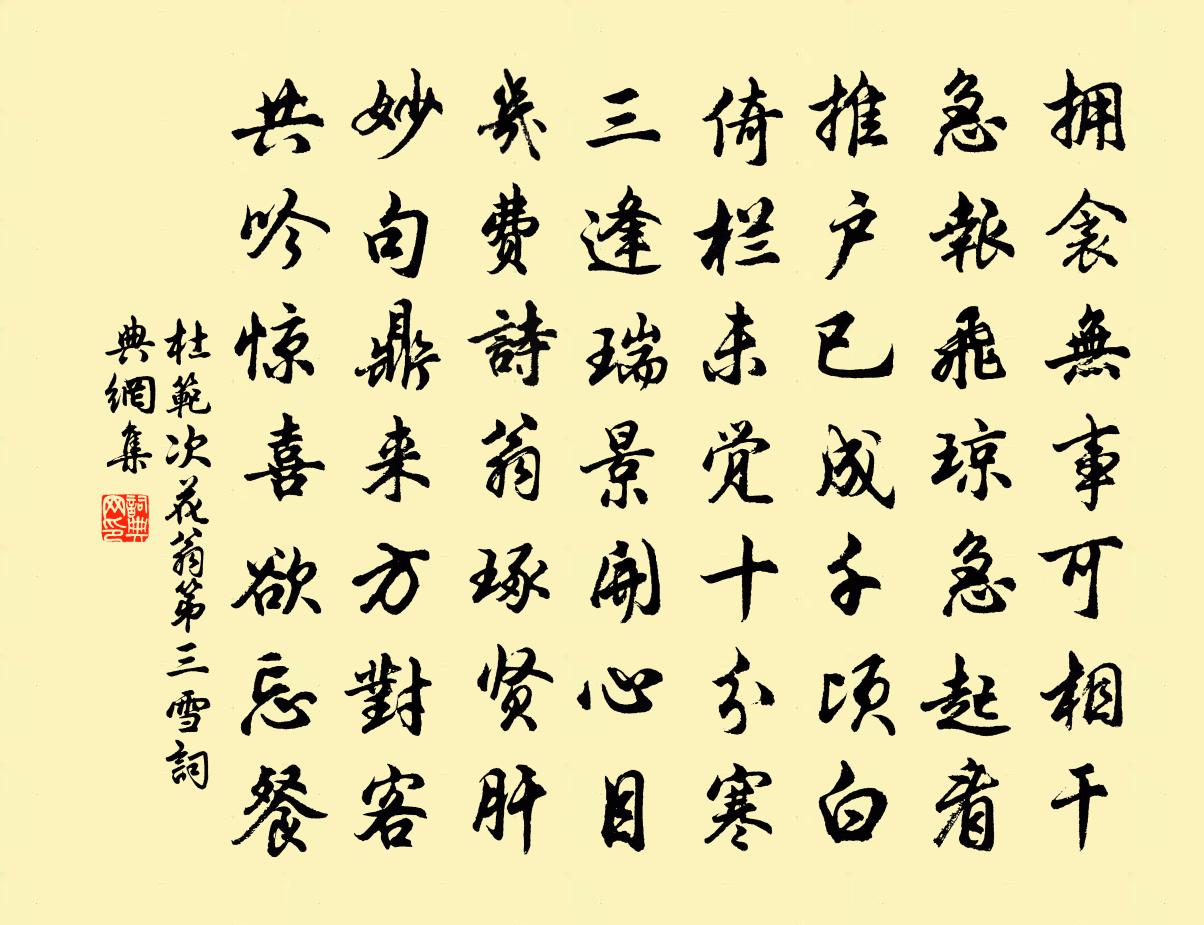 拥衾無事可相干
急報飛琼急起看
推户已成千顷白
倚栏未觉十分寒
三逢瑞景開心目
幾费詩翁琢贤肝
妙句鼎来方對客
共吟惊喜欲忘餐
杜範次花翁第三雪詞
典網集
詞典网印